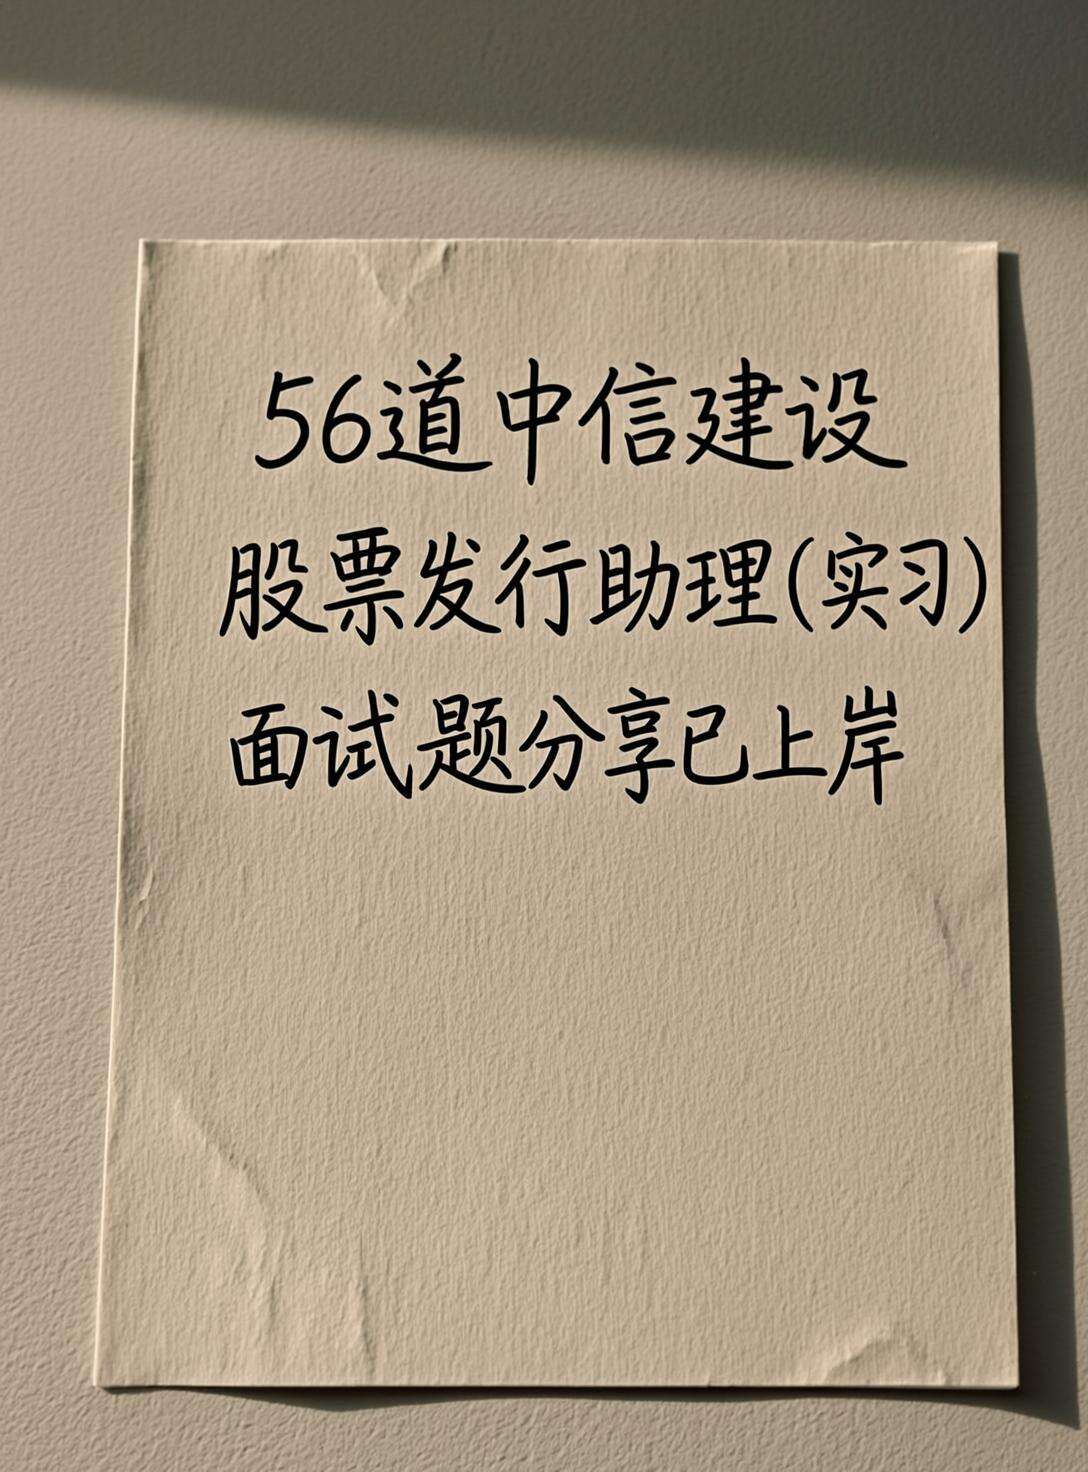 56道中信建设
股票发行助理(实习)
面试题分享已上岸